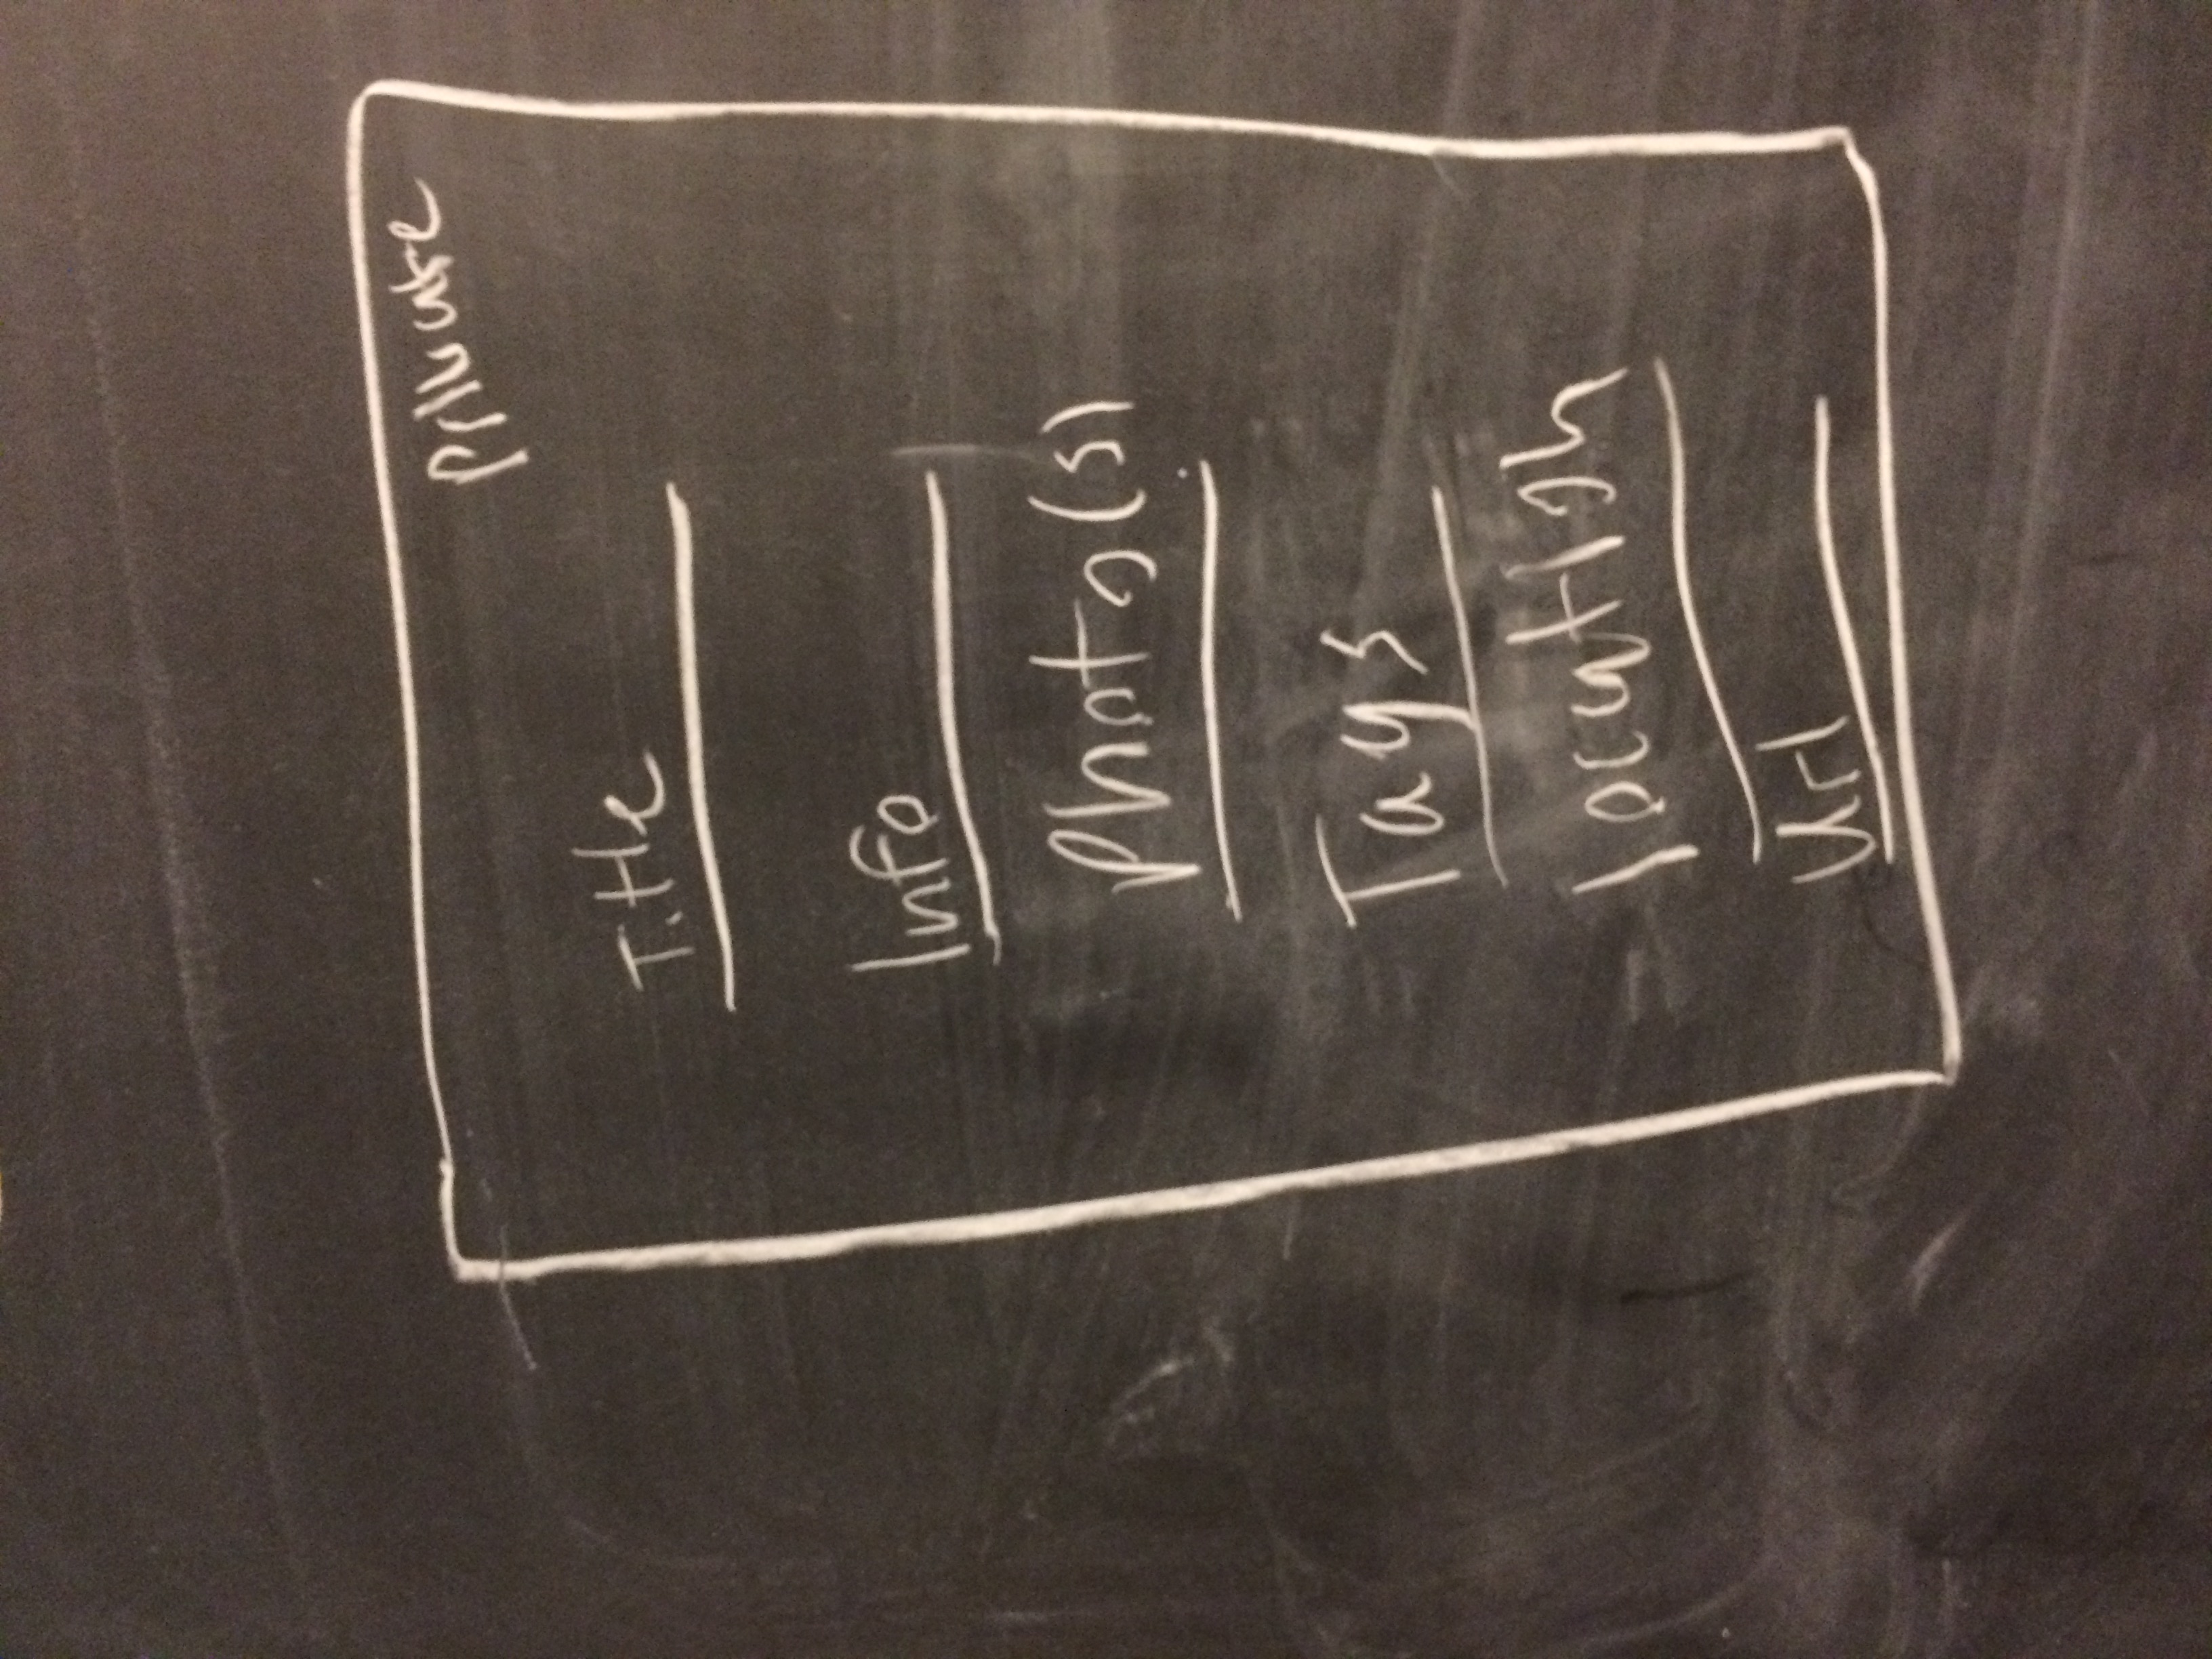 Private
Title
Info
Photo(s)
Tags
location
Url